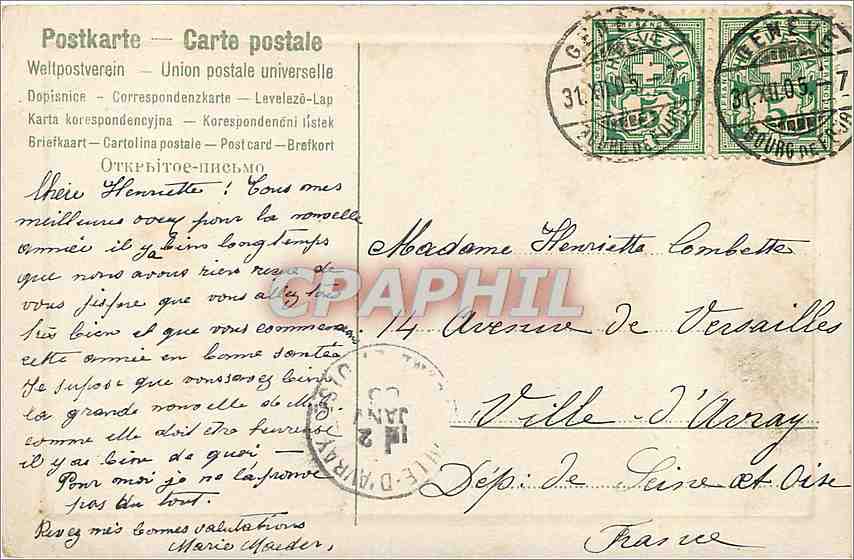 Postkarte — Carte postale
Weltpostverein — Union postale universelle
Dopisnice - Correspondenzkarte – Levelező-Lap
Karta korespondencyjna – Korespondenční lístek
Briefkaart – Cartolina postale – Post card – Brefkort
Открытое-письмо
HELVETIA
HELVETIA
31.XII.05.
31.XII.05. — 7
Chère Henriette! Tous mes
meilleures voex pour la nouvelle
année il y a bien longtemps
que nous avons rien reçue de
vous j'espre que vous allez tous
très bien et que vous commencez
cette année en bonne santée
Je supose que vous savez bien
la grande nouvelle de
comme elle doit être heureuse
il y as bien de quoi —
Pour moi je ne la trouve
pas du tout.
Revez mes bonnes salutations
Marie Maeder,
Madame Henriette Combette
14 Avenue de Versailles
Ville-d'Avray
Dép: de Seine et Oise
France
VILLE-D'AVRAY
CPAPHIL